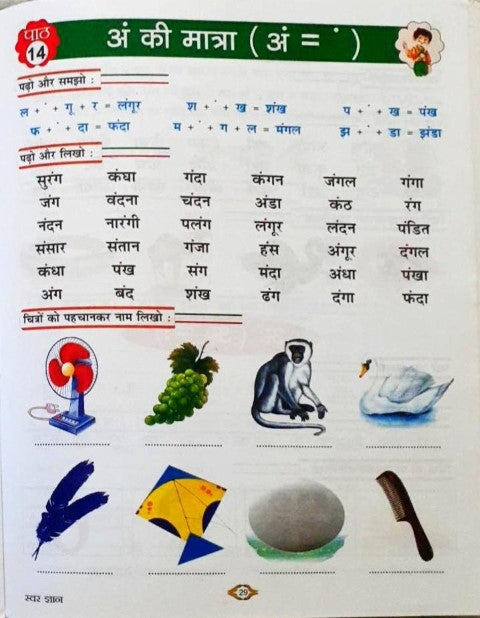 पाठ
14
अं की मात्रा ( अं = ं )
पढ़ो और समझो :
ल + ं + गू + र = लंगूर श + ं + ख = शंख प + ं + ख = पंख
फ + ं + दा = फंदा म + ं + ग + ल = मंगल झ + ं + डा = झंडा
पढ़ो और लिखो :
सुरंग कंघा गंदा कंगन जंगल गंगा
जंग वंदना चंदन अंडा कंठ रंग
नंदन नारंगी पलंग लंगूर लंदन पंडित
संसार संतान गंजा हंस अंगूर दंगल
कंधा पंख संग मंदा अंधा पंखा
अंग बंद शंख ढंग दंगा फंदा
चित्रों को पहचानकर नाम लिखो :
स्वर ज्ञान
29